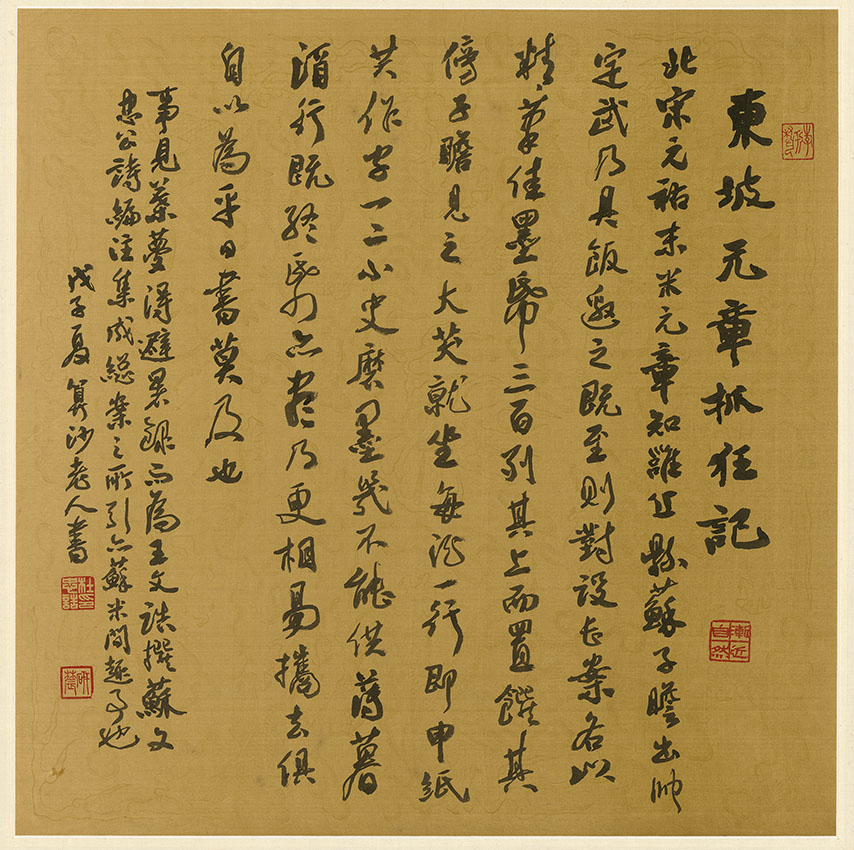 東坡元章抓狂記
北宋元祐末米元章知雍丘縣蘇子瞻出帥
定武乃具飯邀之既至則對設長案各以
精筆佳墨紙三百列其上而置饌其
傍子瞻見之大笑就坐每酒一行即申紙
共作字一二小史磨墨幾不能供薄暮
酒行既終紙亦盡乃更相易攜去俱
自以為平日書莫及也
事見葉夢得避暑錄而為王文誥撰蘇文
忠公詩編注集成總案之所引亦蘇米間趣事也
戊子夏算沙老人書
漸近自然
杜忠誥印